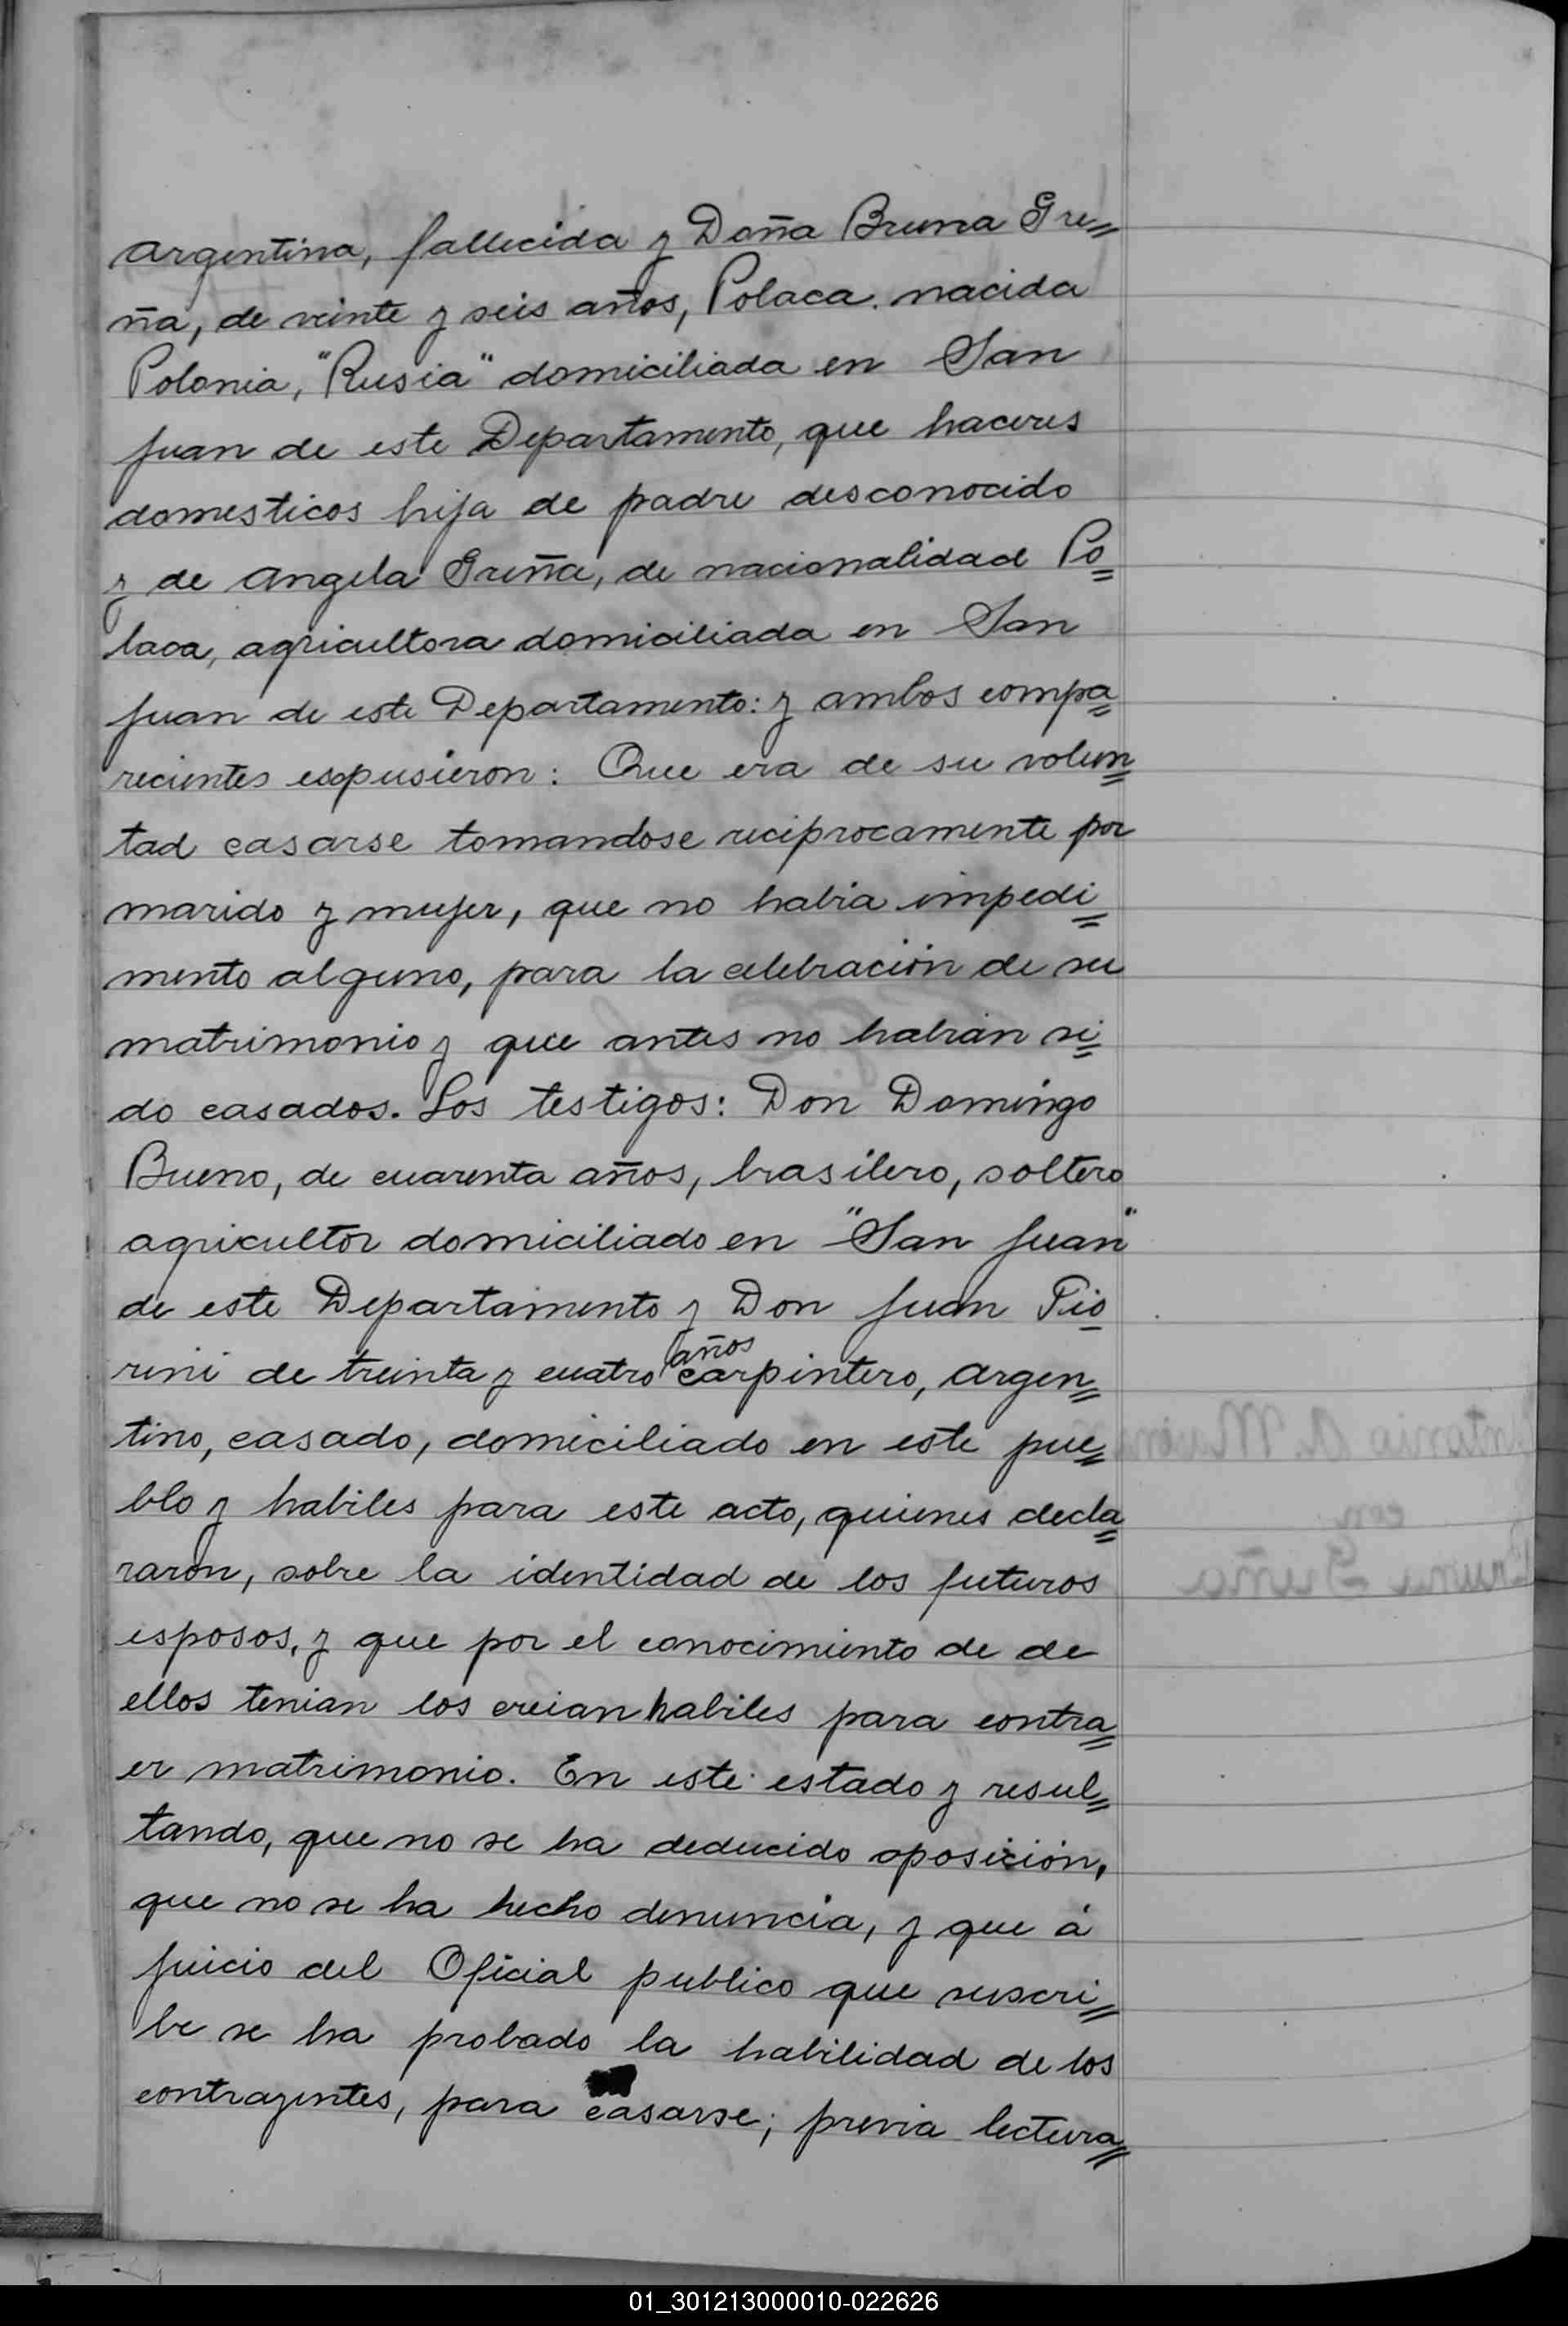 argentina, fallecida y Doña Bruna Gre=
ña, de veinte y seis años, Polaca. nacida
Polonia, "Rusia" domiciliada en San
Juan de este Departamento, que haceres
domesticos hija de padre desconocido
y de Angela Greña, de nacionalidad Po=
laca, agricultora domiciliada en San
Juan de este Departamento: y ambos compa=
recientes expusieron: Que era de su volun=
tad casarse tomandose reciprocamente por
marido y mujer, que no habia impedi=
mento alguno, para la celebración de su
matrimonio y que antes no habian si=
do casados. Los testigos: Don Domingo
Bueno, de cuarenta años, brasilero, soltero
agricultor domiciliado en "San Juan"
de este Departamento y Don Juan Fio
rini de treinta y cuatro años carpintero, argen=
tino, casado, domiciliado en este pue=
blo y habiles para este acto, quienes decla=
raron, sobre la identidad de los futuros
esposos, y que por el conocimiento de de
ellos tenian los creian habiles para contra=
er matrimonio. En este estado y resul=
tando, que no se ha deducido oposición,
que no se ha hecho denuncia, y que á
juicio del Oficial publico que suscri=
be se ha probado la habilidad de los
contrayentes, para casarse; previa lectura=
01_301213000010-022626